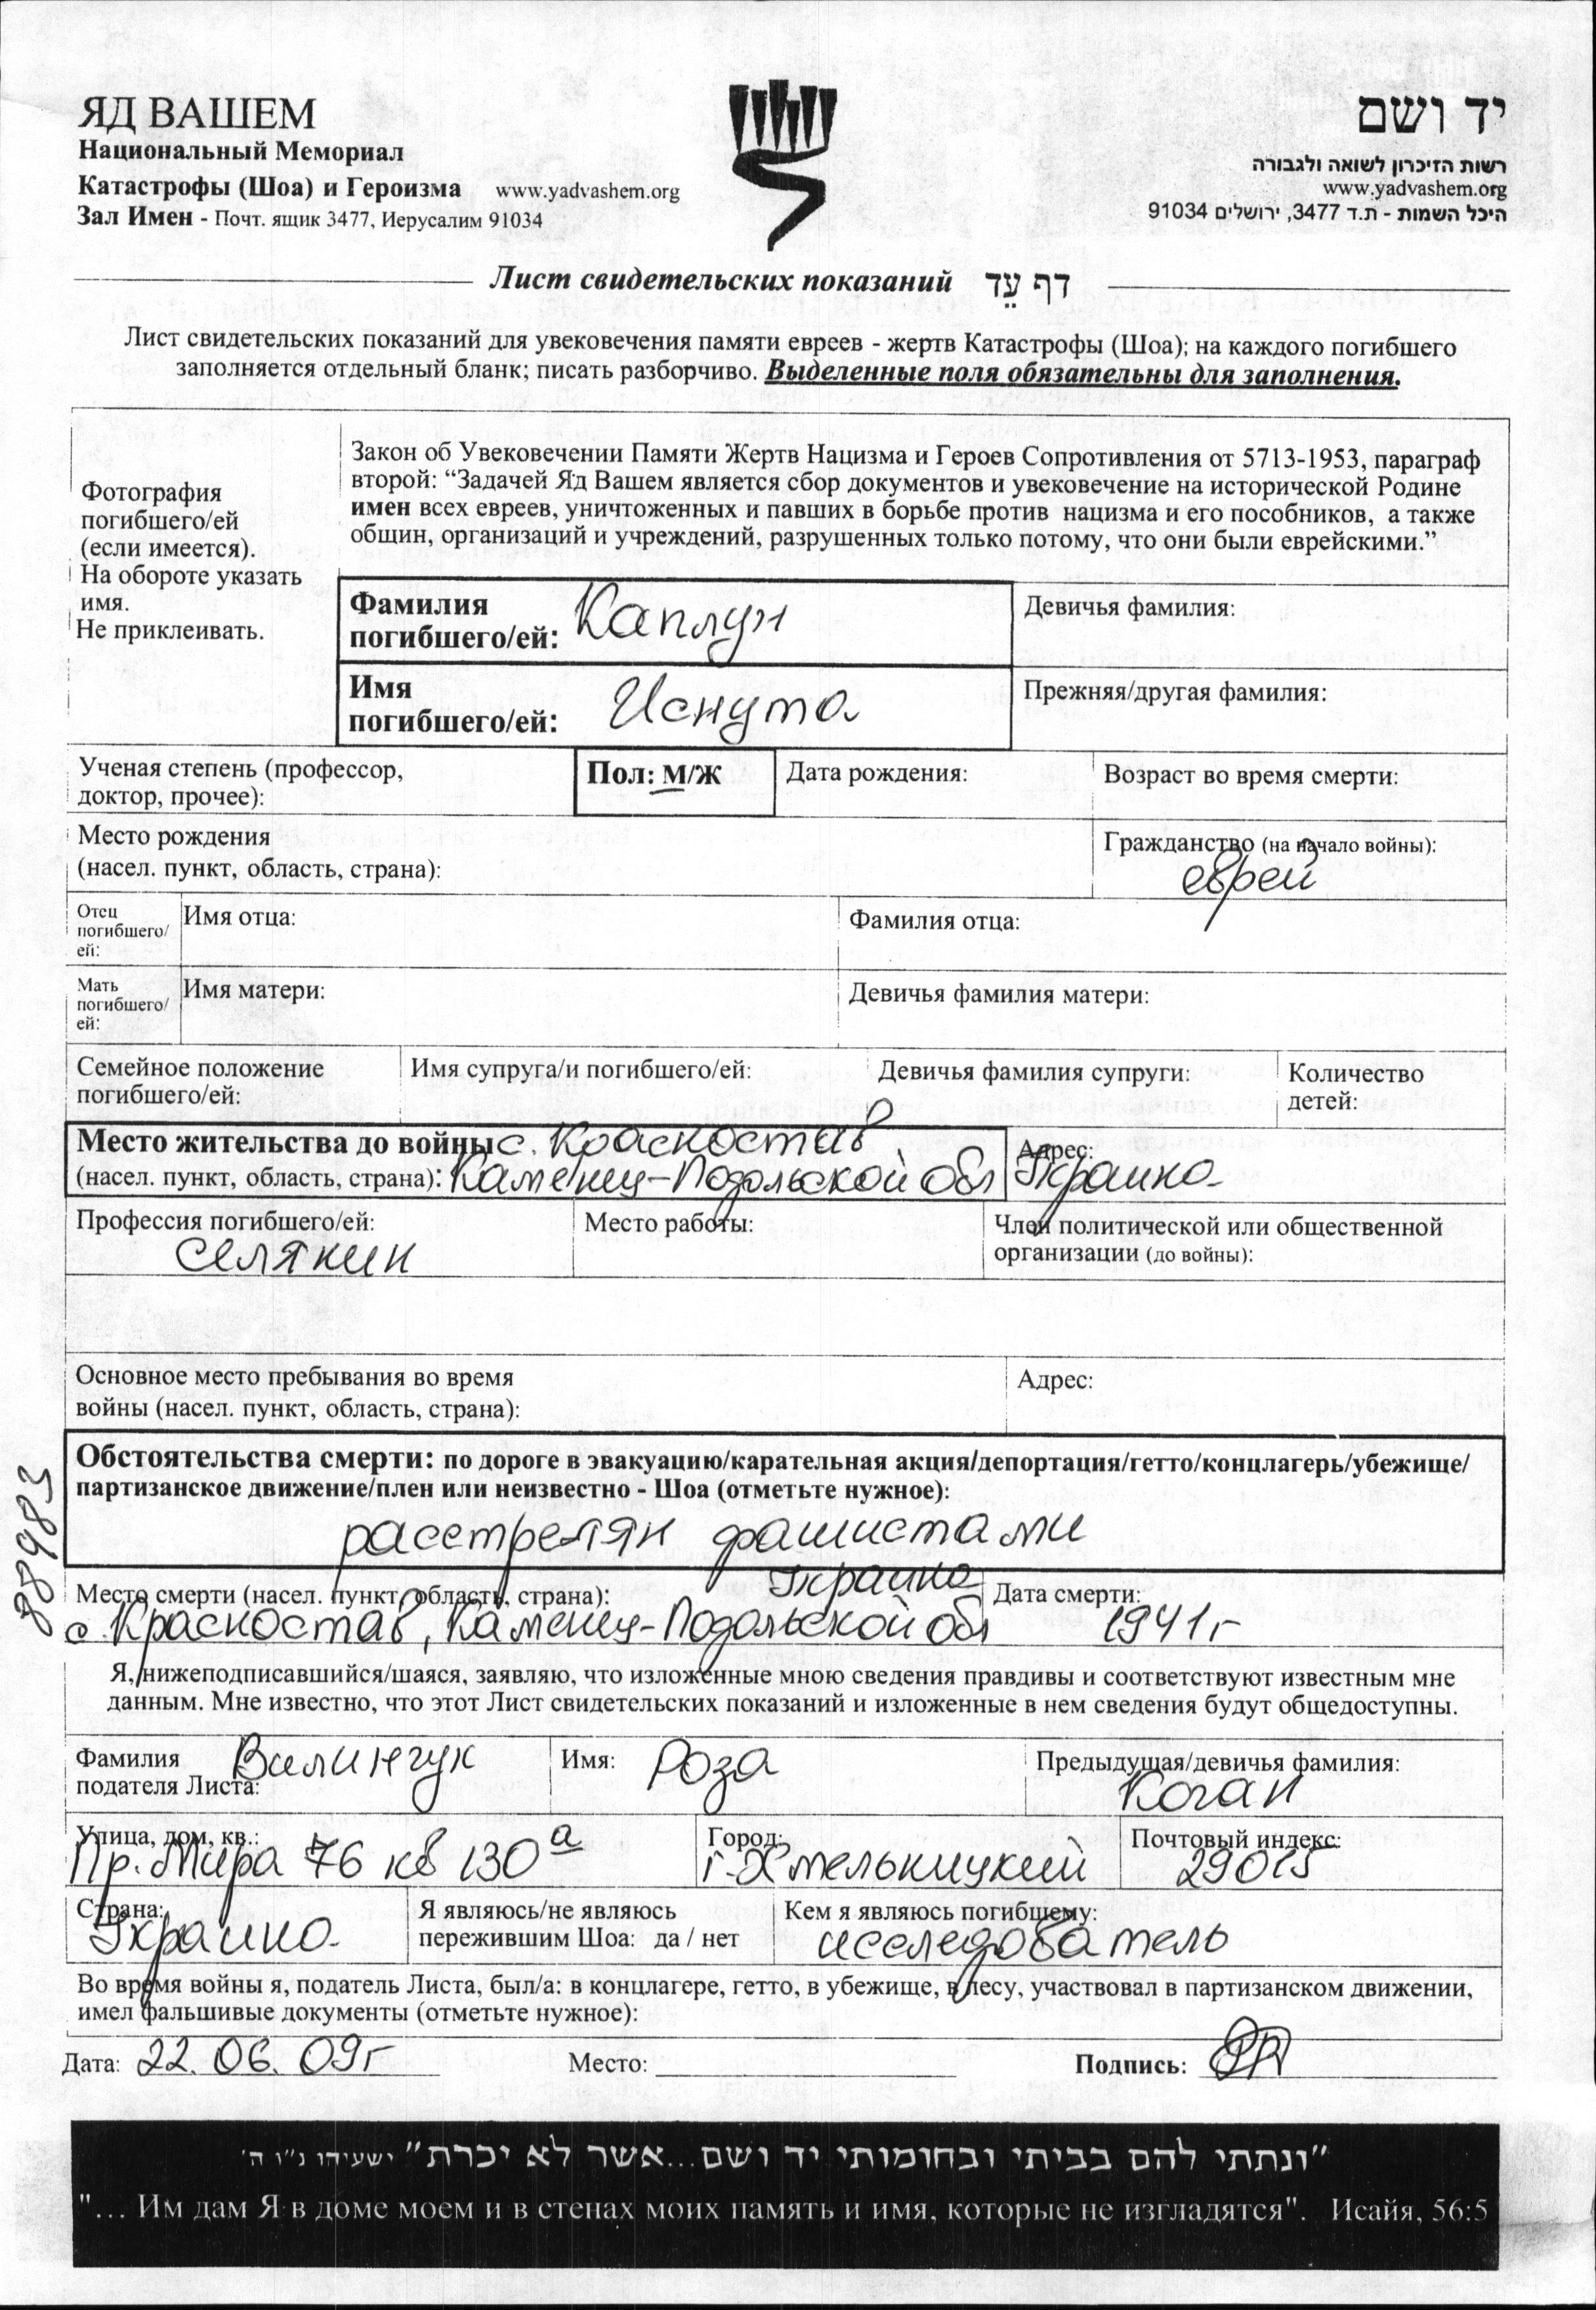 ЯД ВАШЕМ
Национальный Мемориал
Катастрофы (Шоа) и Героизма www.yadvashem.org
Зал Имен - Почт. ящик 3477, Иерусалим 91034
יד ושם
רשות הזיכרון לשואה ולגבורה
www.yadvashem.org
היכל השמות - ת.ד 3477, ירושלים 91034
Лист свидетельских показаний דף עֵד
Лист свидетельских показаний для увековечения памяти евреев - жертв Катастрофы (Шоа); на каждого погибшего
заполняется отдельный бланк; писать разборчиво. Выделенные поля обязательны для заполнения.
Фотография
погибшего/ей
(если имеется).
На обороте указать
имя.
Не приклеивать.
Закон об Увековечении Памяти Жертв Нацизма и Героев Сопротивления от 5713-1953, параграф
второй: “Задачей Яд Вашем является сбор документов и увековечение на исторической Родине
имен всех евреев, уничтоженных и павших в борьбе против нацизма и его пособников, а также
общин, организаций и учреждений, разрушенных только потому, что они были еврейскими.”
Фамилия
погибшего/ей: Каплун
Девичья фамилия:
Имя
погибшего/ей: Иснута
Прежняя/другая фамилия:
Ученая степень (профессор,
доктор, прочее):
Пол: М/Ж
Дата рождения:
Возраст во время смерти:
Место рождения
(насел. пункт, область, страна):
Гражданство (на начало войны):
еврей
Отец
погибшего/
ей:
Имя отца:
Фамилия отца:
Мать
погибшего/
ей:
Имя матери:
Девичья фамилия матери:
Семейное положение
погибшего/ей:
Имя супруга/и погибшего/ей:
Девичья фамилия супруги:
Количество
детей:
Место жительства до войны с. Красностав
(насел. пункт, область, страна): Каменец-Подольской обл
Адрес:
Украина
Профессия погибшего/ей:
селянин
Место работы:
Член политической или общественной
организации (до войны):
Основное место пребывания во время
войны (насел. пункт, область, страна):
Адрес:
Обстоятельства смерти: по дороге в эвакуацию/карательная акция/депортация/гетто/концлагерь/убежище/
партизанское движение/плен или неизвестно - Шоа (отметьте нужное):
расстрелян фашистами
88983
Место смерти (насел. пункт, область, страна): Украина
с. Красностав, Каменец-Подольской обл
Дата смерти:
1941г
Я, нижеподписавшийся/шаяся, заявляю, что изложенные мною сведения правдивы и соответствуют известным мне
данным. Мне известно, что этот Лист свидетельских показаний и изложенные в нем сведения будут общедоступны.
Фамилия
подателя Листа: Вилинчук
Имя: Роза
Предыдущая/девичья фамилия:
Коган
Улица, дом, кв.:
Пр. Мира 76 кв 130а
Город:
г. Хмельницкий
Почтовый индекс:
29015
Страна:
Украина
Я являюсь/не являюсь
пережившим Шоа: да / нет
Кем я являюсь погибшему:
исследователь
Во время войны я, податель Листа, был/а: в концлагере, гетто, в убежище, в лесу, участвовал в партизанском движении,
имел фальшивые документы (отметьте нужное):
Дата: 22.06.09г
Место:
Подпись:
"ונתתי להם בביתי ובחומותי יד ושם...אשר לא יכרת" ישעיהו נ"ו ה'
"... Им дам Я в доме моем и в стенах моих память и имя, которые не изгладятся". Исайя, 56:5